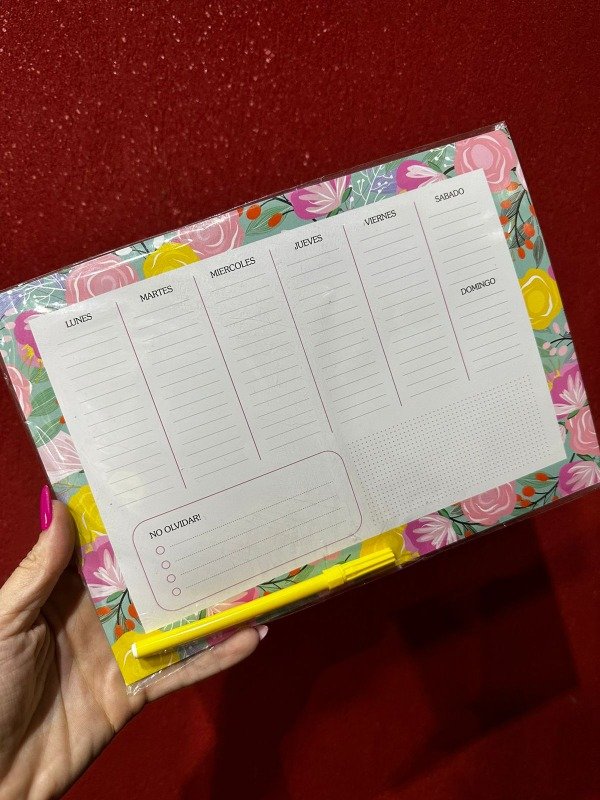 LUNES
MARTES
MIERCOLES
JUEVES
VIERNES
SABADO
DOMINGO
NO OLVIDAR!